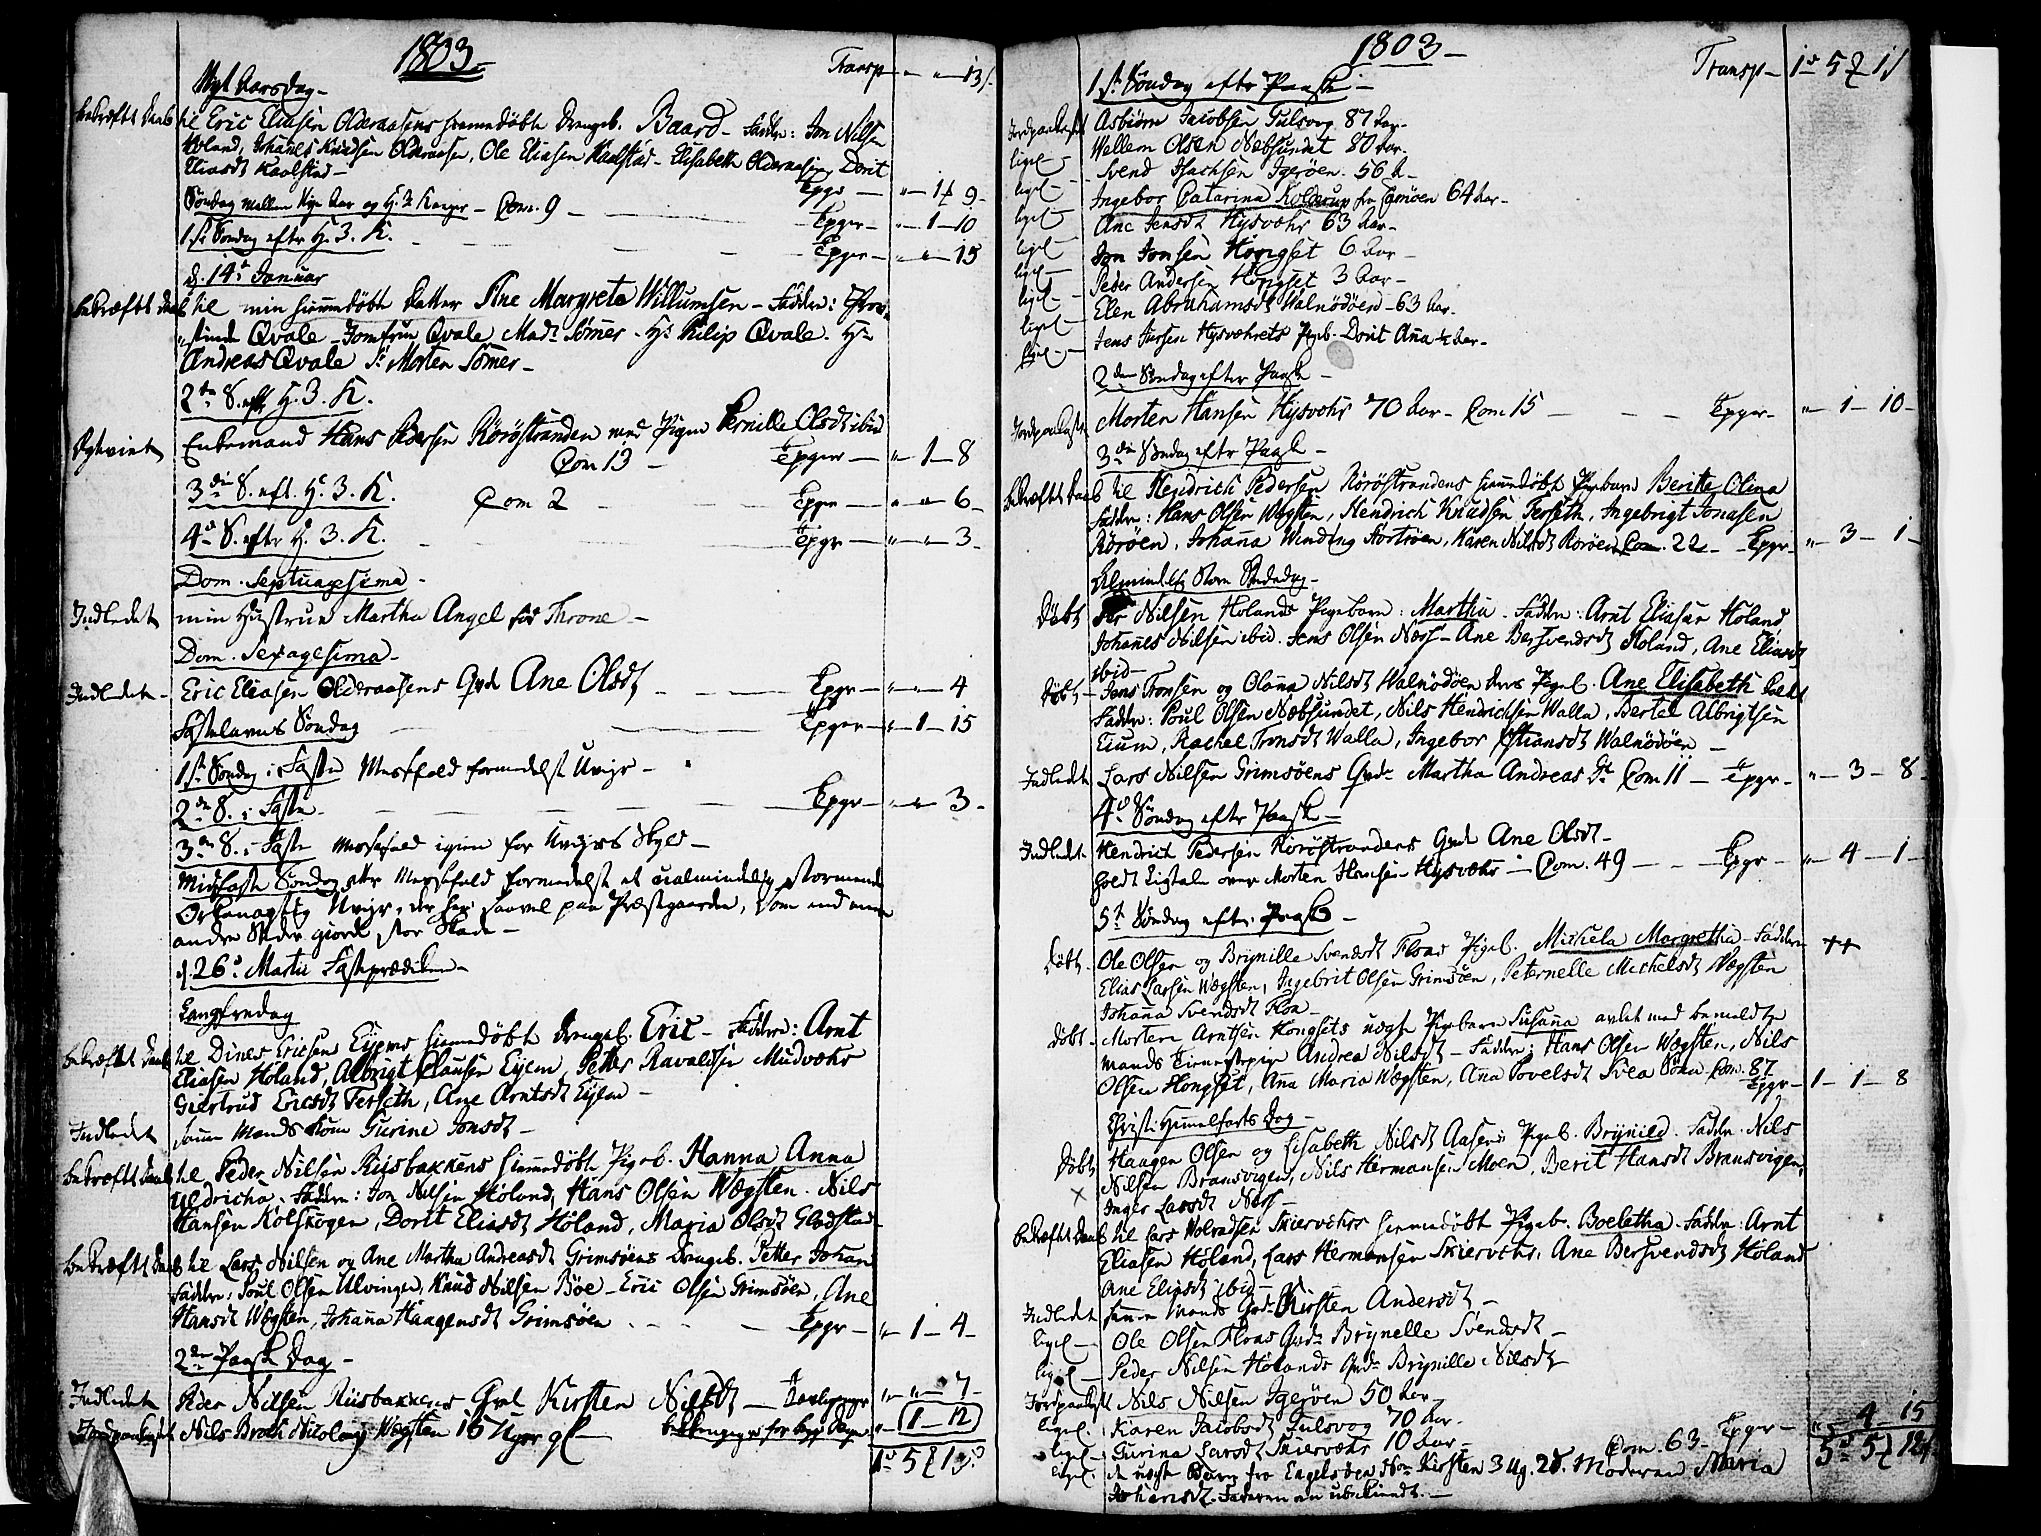 1803.
Transp — " — " — 13 s.
Nyt Aarsdag —
bekræftt Daab til Eric Eliasen Olderaasens hiemmedøbte Drengeb. Baard — Faddre: Jon Nilsen
Høland, Johanes Knudsen Olderaasen, Ole Eliasen Kaalstad — Elisabeth Olderaasen, Dorit
Eliasdt Kaalstad —
Epgr — " — 1 — 9 —
Søndag mellem Nye Aar og H. 3 Konger — Com. 9 — Epgr — " — 1 — 10
1ste Søndag eftr H. 3. K. — Epgr — " — " — 15
d. 14de Januar
bekræftt Daab til min hiemmedøbte Datter Stine Margreta Willumsen — Faddre:
Qvale — Jomfrue Qvale, Madm Sømer — Hr Filip Qvale. Hr
Andreas Qvale Sr Morten Sømer —
2den S. eftr H. 3. K.
Egteviet Enkemand Hans Pedersen Rörøstranden med Pigen Pernille Olsdt ibid
Com 13 — Epgr — " — 1 — 8
3die S. eft. H. 3. K. Com 2 — Epgr — " — " — 6
4de S. eftr H. 3. K. — Epgr — " — " — 3 —
Dom. Septuagesima —
Indledet min Hustrue Martha Angel fød Throne —
Dom. Sexagesima —
Indledet — Eric Eliasen Olderaasens Qvde Ane Olsdt — Epgr — " — " — 4
Fastelavns Søndag — Epgr — " — 1 — 15
1ste Søndag i Faste Messefald formedelst Uvejr —
2den S. i Faste — Epgr — " — " — 3 —
3die S. i Faste Messefald igien for Uvejrs Skyld —
Midfaste Søndag Messefald formedelst et ualmindelig stormende
Orkanagtig Uvejr, der her saavel paa Præstgaarden, som
andre Steder giorde stor Skade —
d. 26de Martii Fasteprædiken —
Langfredag
bekræftt Daab til Dines Ericsen Eyjems hiemmedøbte Drengeb. Eric — Faddre: Arnt
Eliasen Høland, Albrigt Clausen Eyjem, Petter Ravaldsen Mudvæhr
Giertrud Ericsdt Ferseth, Ane Arntsdt Eyjem —
Indledet Samme Mands Kone Gurine Jonsdt —
bekræftt Daab til Peder Nilsen Riisbakkens hiemmedøbte Pigeb. Hanna Anna
Uldricha — Faddre: Jon Nilsen Høland, Hans Olsen Wægsten. Nils
Hansen Kolskogen, Dorit Eliasdt Høland, Maria Olsdt Gladstad
bekræftt Daab til Lars Nilsen og Ane Martha Andreasdt Grimsøens Drengeb. Petter Johan
Faddre: Poul Olsen Ulvingen, Knud Nilsen Bøe — Eric Olsen Grimsøen, Ane
Hansdt Wægsten, Johana Haagensdt Grimsøen — Epgr — " — 1 — 4 —
2den Paaske Dag —
Indledet Peder Nilsen Riisbakkens Qvde Kirsten Nilsdt — " — " — 7 —
Jordpaakastet Nils Broch Nicolaij Wægsten 15 Uger gl — 1 — 12
1 — 5 — 1
1803 —
Transp — 1 — 5 — 1
1ste Søndag eftr Paaske —
Jordpaakastet Asbiørn Jacobsen Fulsvog 87 Aar —
ligel — Wellem Olsen Nebsundet 80 Aar.
ligel — Svend Isachsen Igerøen. 56 A —
ligel — Ingebor Catarina Kolderup fra Camøen 64 Aar —
ligel — Ane Jensdt Hysvæhr 63 Aar —
ligel — Jon Jonsen Hongset 6 Aar —
ligel — Peder Andersen Hongset 3 Aar —
ligel — Elen Abrahamsdt Walnødøen — 63 Aar.
ligel — Jens Hysvæhrets Pigeb. Dorit Ana ½ Aar —
2den Søndag eftr Paaske —
Jordpaakastet Morten Hansen Hysvæhr 70 Aar — Com 15 — Epgr — " — 1 — 10 —
3die Søndag eftr Paaske —
bekræftt Daab til Hendrich Pedersen Rörøstrandens hiemmedøbte Pigebarn Berite Olina
Faddre: Hans Olsen Wægsten, Hendrich Knudsen Ferseth, Ingebrigt Jonasen
Rörøen, Johana Winding, Karen Nilsdt Rorøen Com. 22 — Epgr — " — 3 — 1 —
Almindelig Store Bededag —
Døbt Per Nilsen Hølands Pigebarn: Martha. Faddre: Arnt Eliasen Høland
Johanes Nilsen ibid. Jens Olsen Næss — Ane Bersvendsdt Høland, Ane Eliasdt
ibid —
Døbt — Jens Tronsen og Olana Nilsdt Walnødøen deres Pigeb. Ane Elisabeth
Faddre: Poul Olsen Næbsundet, Nils Hendrichsen Walla, Bertel Albrigtsen
Eium, Rachel Tronsdt Walla, Ingebor Walnødøen —
Indledet Lars Nilsen Grimsøens Qvde Martha Andreas Dt Com 11 — Epgr — " — 3 — 8 —
4de Søndag eftr Paaske —
Indledet Hendrich Pedersen Rörøstrandens Qvde Ane Olsdt —
holdt Ligtale over Morten Hansen Hysvæhr — Com. 49 — Epgr — " — 4 — 1 —
5te Søndag eftr Paaske —
Døbt Ole Olsen og Brynille Svendsdt Floas Pigeb. Michela Margretha — Faddre ++
Elias Larsen Wægsten, Ingebrit Olsen Grimsøen, Peternelle Michelsdt Wægsten
Johana Svendsdt Floa —
Døbt — Morten Arntsen Hongsets uægte Pigebarn Susana avlet med bemeldte
Mands Tienestepige Andrea Nilsdt — Faddre: Hans Olsen Wægsten, Nils
Olsen Hongset, Ana Maria Wægsten, Ana Povelsdt Com. 87
Epgr — 1 — 1 — 8
Christi Himmelfarts Dag —
Døbt Haagen Olsen og Lisabeth Nilsdt Aasens Pigeb. Brynild. Faddr. Nils
× Nilsen Bransvigen, Nils Hermansen Moen, Berit Hansdt Bransvigen,
Inger Larsdt Næss —
bekræftt Daab til Lars Skiervæhrs hiemmedøbte Pigeb. Boeletha — Faddre: Arnt
Eliasen Høland, Lars Hermansen Skiervæhr, Ane Bersvendsdt Høland
Ane Eliasdt ibid —
Indledet samme Mands Qvde Kirsten Andersdt —
ligel — Ole Olsen Floas Qvde Brynelle Svendsdt —
ligel — Peder Nilsen Hølands Qvde Brynille Nilsdt
Jordpaakastet Nils Nilsen Igerøen 50 Aar —
ligel. Karen Jacobsdt Fulsvog 70 Aar.
ligel — Gurina Larsdt Skiervæhr 10 Aar — Com. 63 — Epgr — " — 4 — 15
ligel — et uægte Barn fra Engelsøen Nom Kirsten 3 Ug. 2 D. Moderen Maria 5 — 5 — 12
Johansdt. Faderen er ubekiendt. —